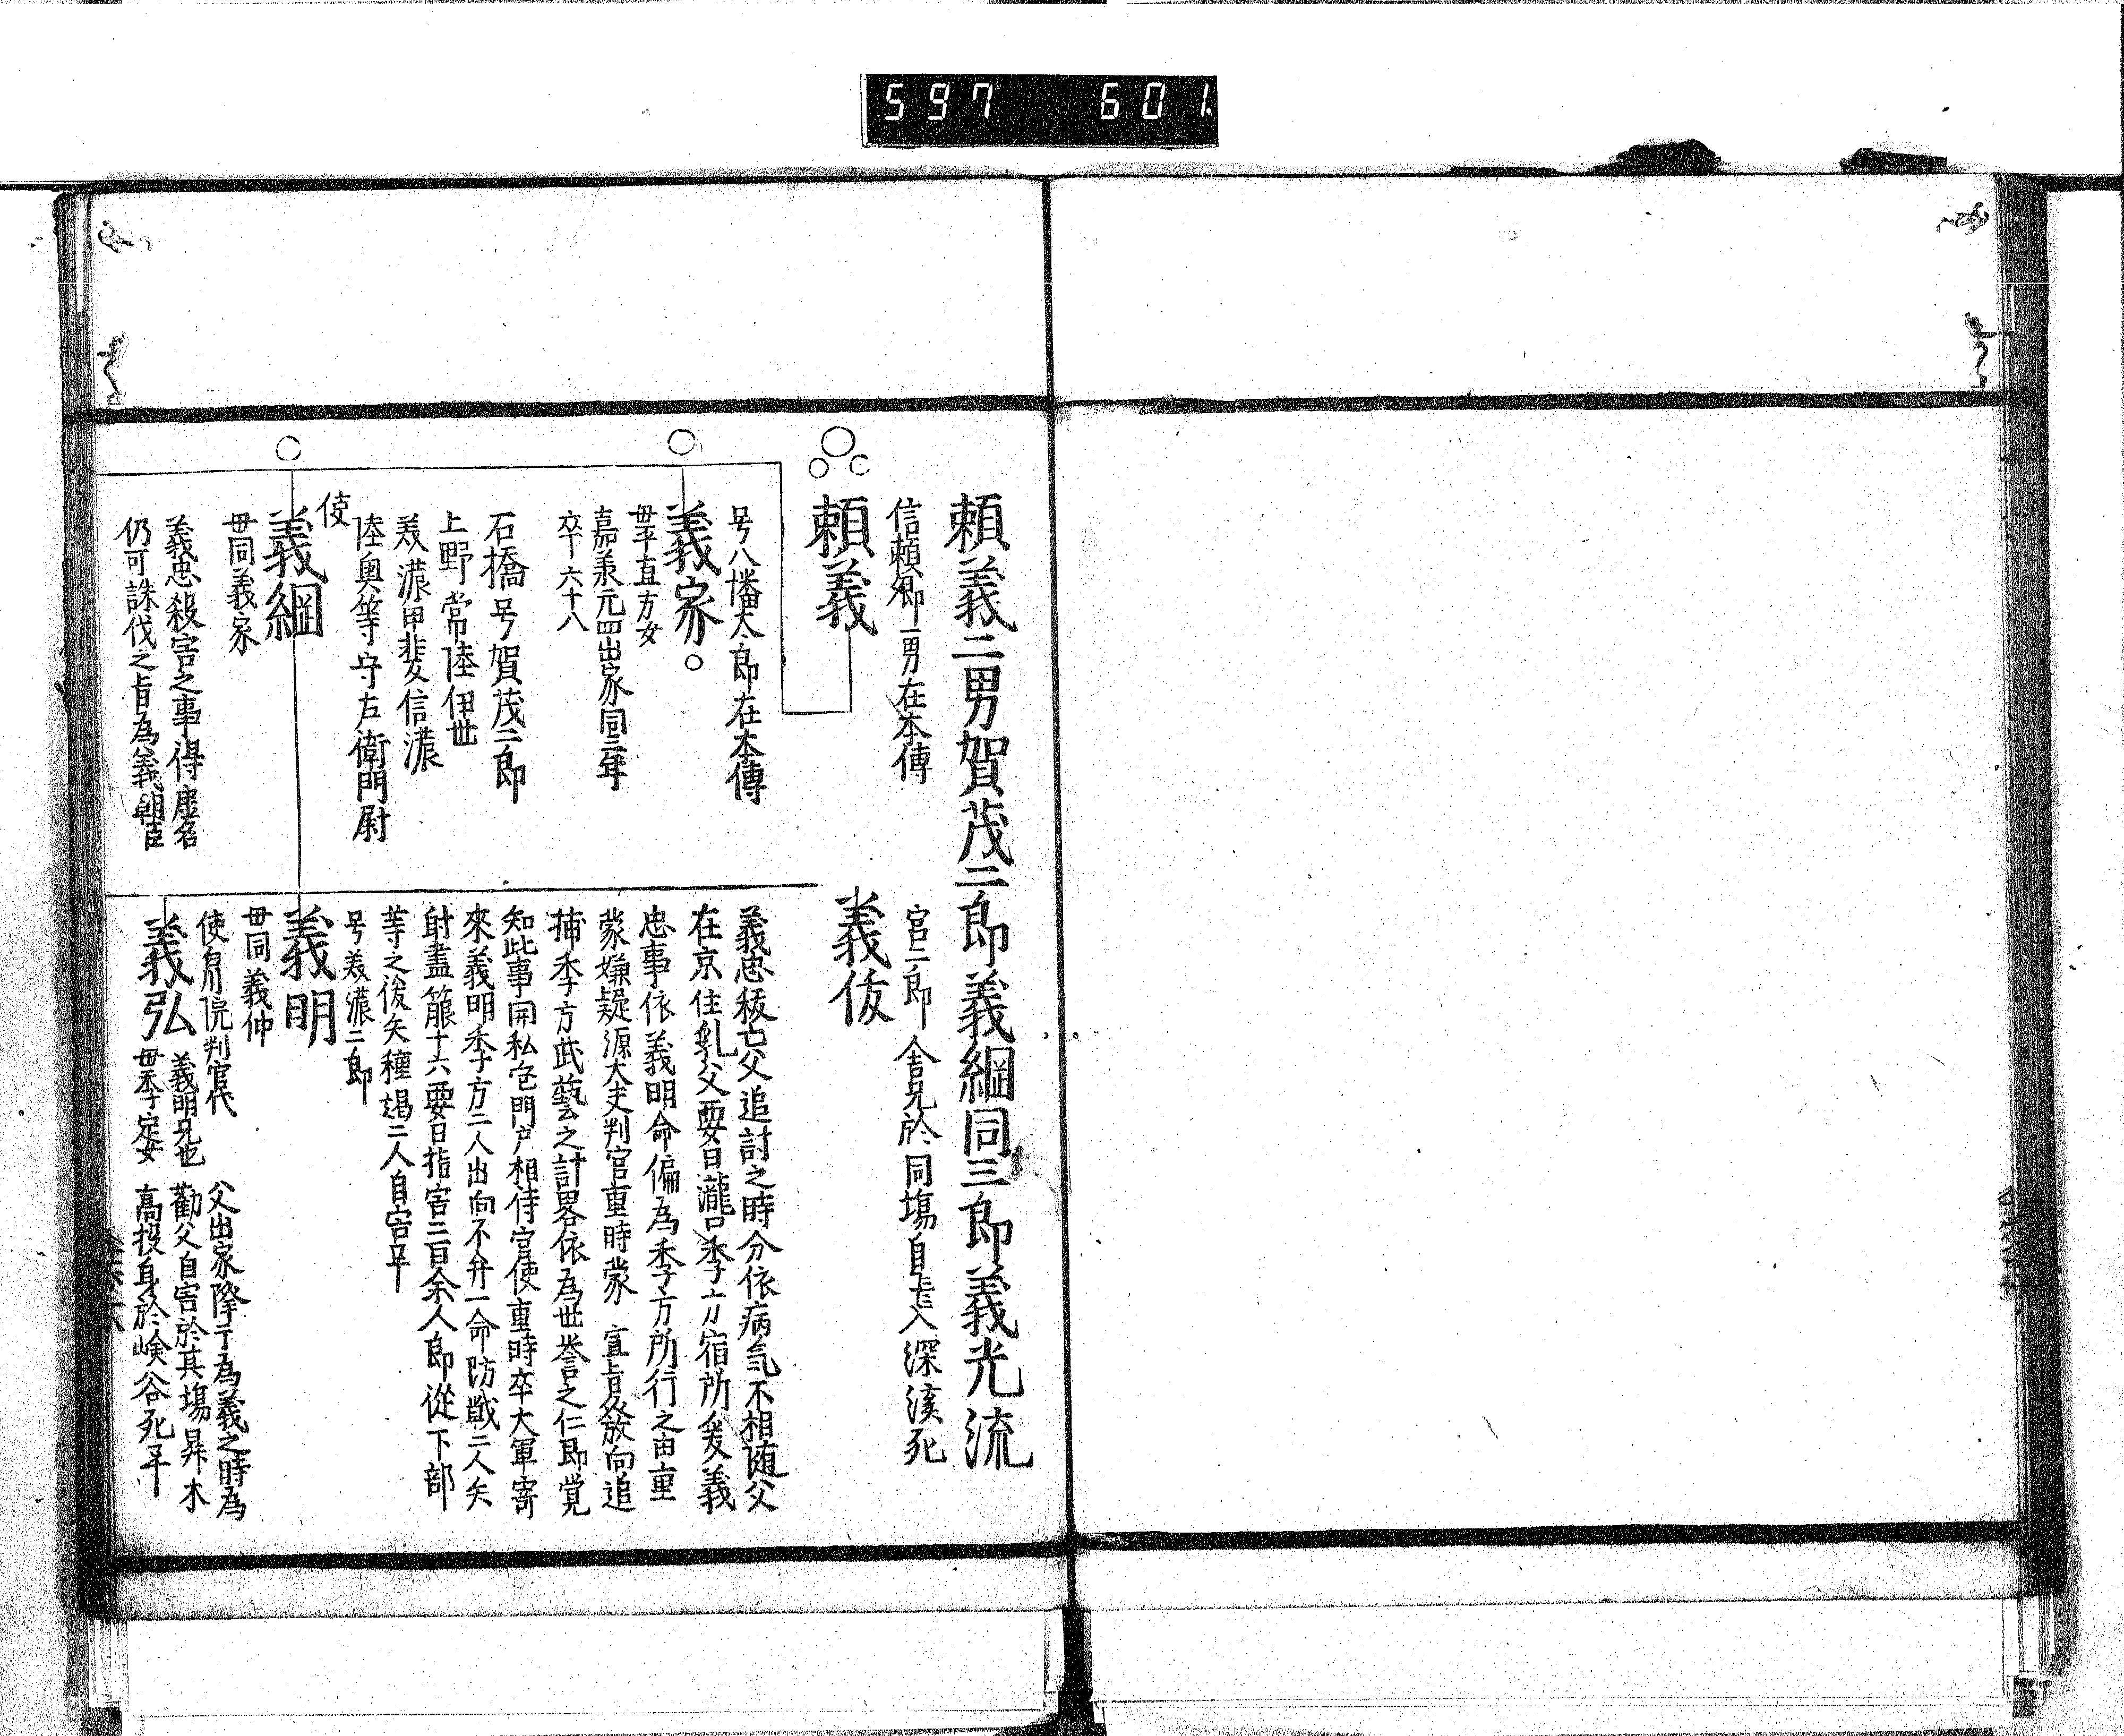 597 601
頼義二男賀茂二郎義綱同三郎義光流
信頼郷一男在本傳
頼義
号八幡太郎在本傳
義家
母平直方女
嘉承元四出家同三年
卒六十八
石橋号賀茂二郎
上野常陸伊世
美濃甲斐信濃
陸奥等守左衛門尉
使
義綱
母同義家
義忠殺害之事得虚名
仍可誅伐之旨為義朝臣
宮二郎 舎兄於同塲自害入深渓死
義俊
義忠被亡父追討之時分依病気不相随父
在京住乳父要目瀧口季方宿所爰義
忠事依義明命偏為季方所行之由重
蒙嫌疑源大夫判官重時蒙 宣旨発向追
捕季方武藝之計畧依為世誉之仁即覚
知此事開私宅門戸相待官使重時卒大軍寄
來義明季方二人出向不弁一命防戦二人矢
射盡箙十六要目指害二百余人郎従下部
等之後矢種竭二人自害畢
号美濃二郎
義明
母同義仲
使白川院判官代
義弘
義明兄也
母季定女
父出家降了為義之時為
勸父自害於其塲昇木
高投身於峻谷死畢